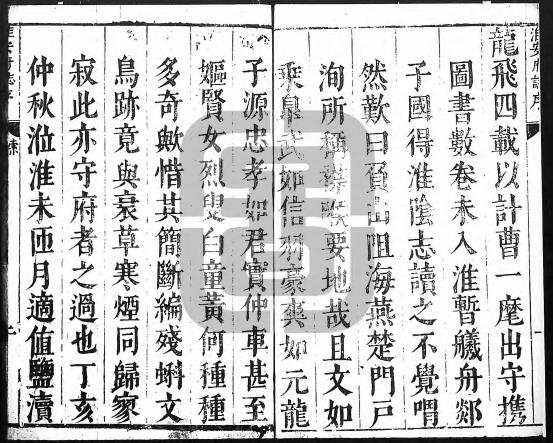 淮安府誌序
一
龍飛四載以計曹一麾出守攜
圖書數卷未入淮暫艤舟郯
子國得淮陰志讀之不覺喟
然歎曰負山阻海燕楚門戶
洵所稱喉要地哉且文如
乘皐武如信羽豪爽如元龍
子源忠孝如君實仲車甚至
嫗賢女烈叟白童黃何種種
多奇歟惜其簡斷編殘蝌文
鳥跡竟與衰草寒煙同歸寥
寂此亦守府者之過也丁亥
仲秋涖淮未匝月適值鹽瀆